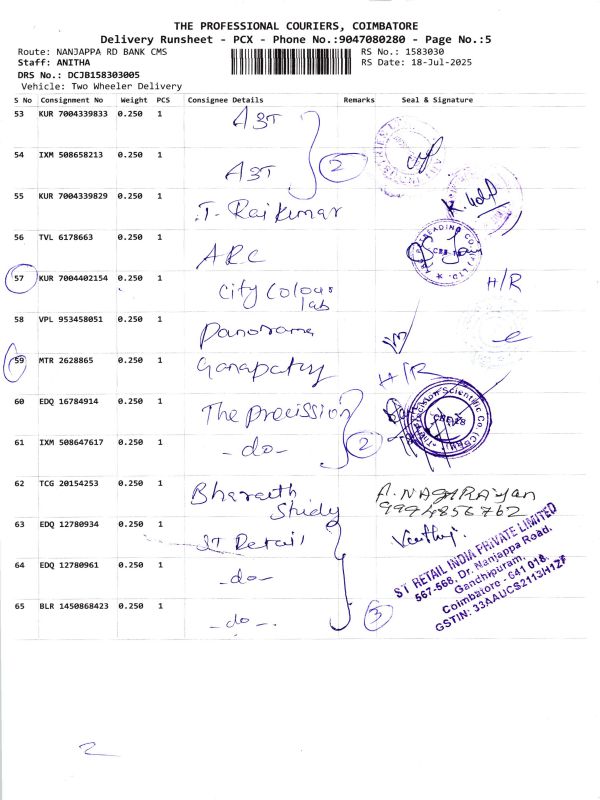 THE PROFESSIONAL COURIERS, COIMBATORE
Delivery Runsheet - PCX - Phone No.:9047080280 - Page No.:5
Route: NANJAPPA RD BANK CMS
RS No.: 1583030
Staff: ANITHA
RS Date: 18-Jul-2025
DRS No.: DCJB158303005
Vehicle: Two Wheeler Delivery
S No Consignment No Weight PCS Consignee Details Remarks Seal & Signature
53 KUR 7004339833 0.250 1 A3T
54 IXM 508658213 0.250 1 A3T 2
55 KUR 7004339829 0.250 1 T. Raj Kumar
56 TVL 6178663 0.250 1 ARC
57 KUR 7004402154 0.250 1 City Colour lab H/R
58 VPL 953458051 0.250 1 Panorama
59 MTR 2628865 0.250 1 Ganapathy H/R
60 EDQ 16784914 0.250 1 The Precission
61 IXM 508647617 0.250 1 -do- 2
62 TCG 20154253 0.250 1 Bharath Shidy A. NAGARAJAN
9994856762
63 EDQ 12780934 0.250 1 ST Retail
64 EDQ 12780961 0.250 1 -do-
65 BLR 1450868423 0.250 1 -do- 3
ST RETAIL INDIA PRIVATE LIMITED
567-568, Dr. Nanjappa Road,
Gandhipuram,
Coimbatore - 641 018.
GSTIN: 33AAUCS2113H1ZF
2